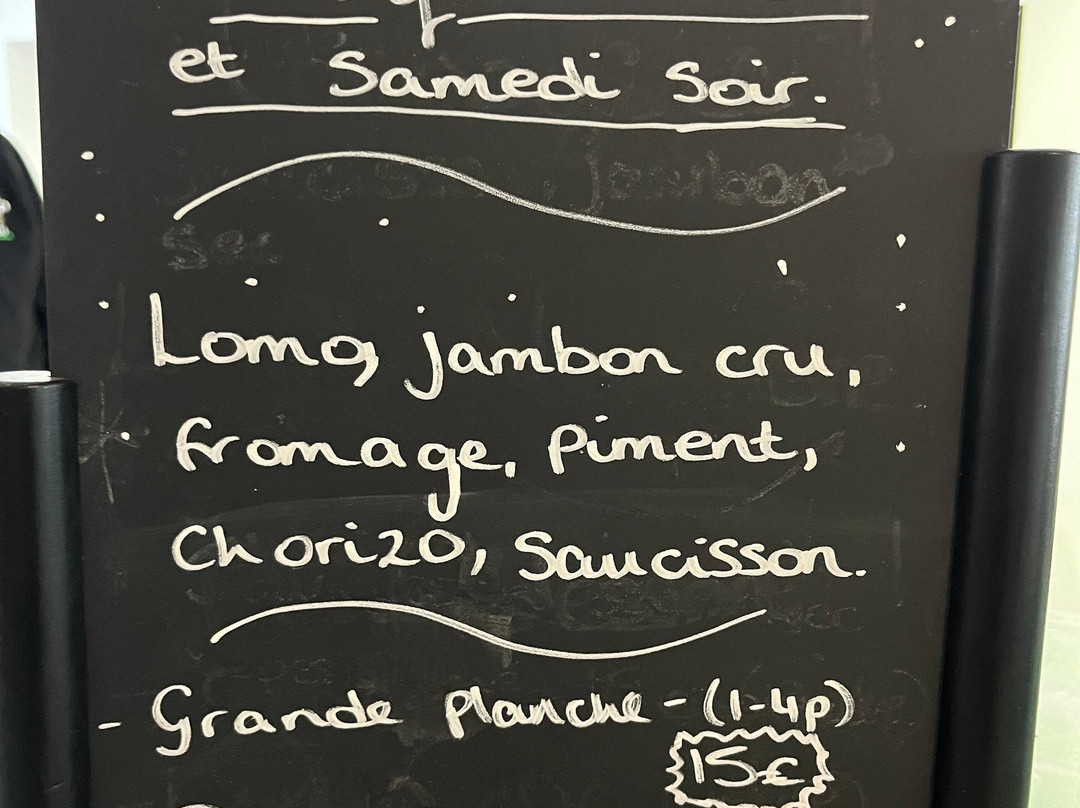 et Samedi Soir.
jambon
Sec
Lomo, jambon cru,
fromage, Piment,
Chorizo, Saucisson.
- Grande planche - (1-4p)
15€